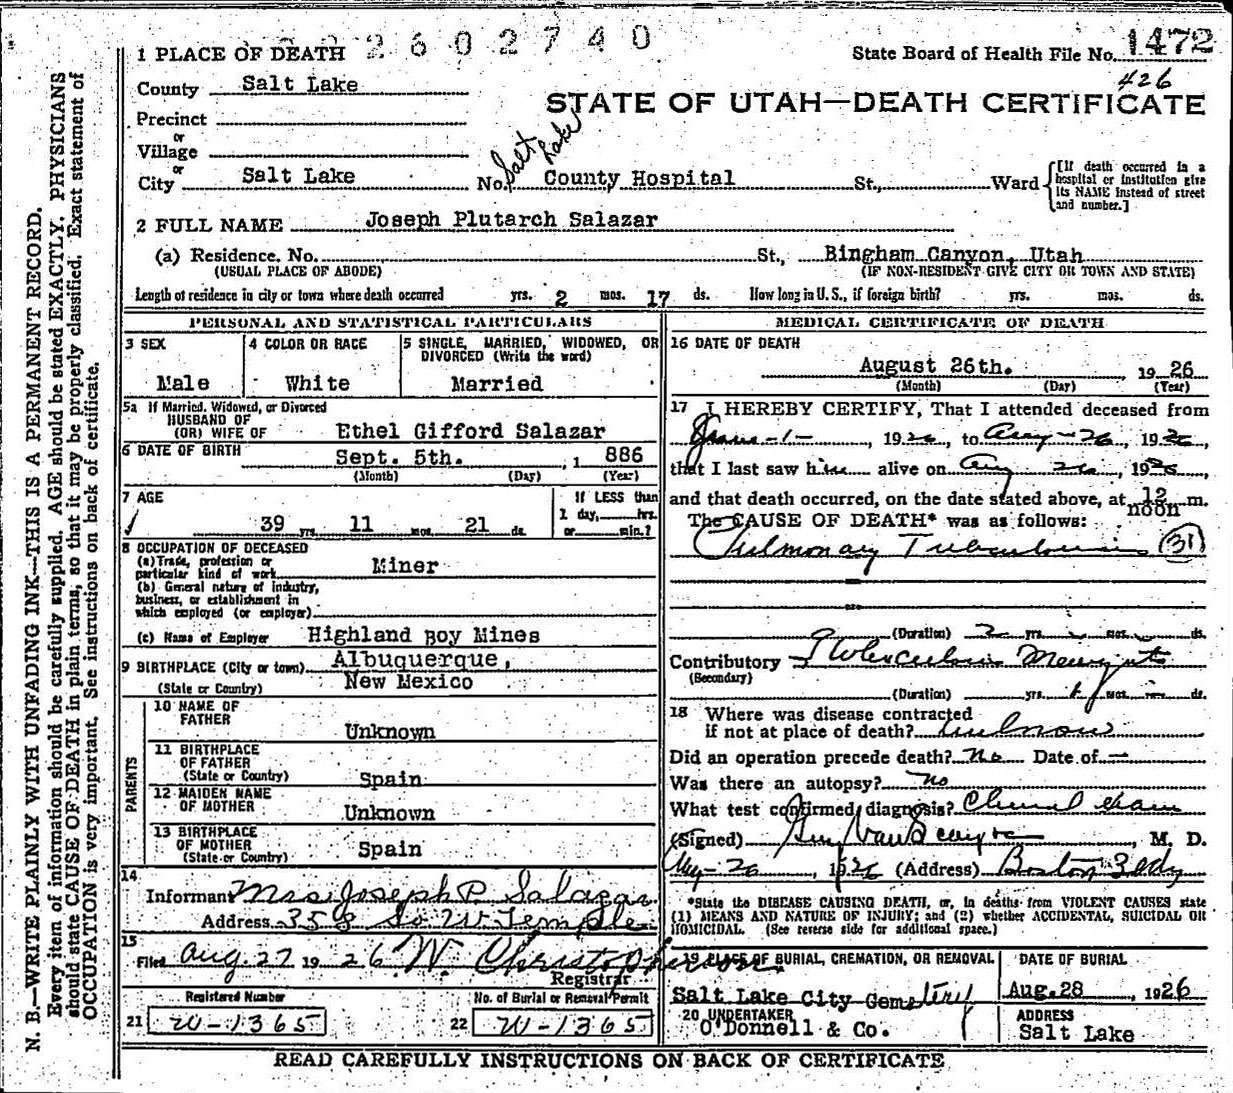 2602740
1 PLACE OF DEATH
State Board of Health File No. 1472
426
County Salt Lake
STATE OF UTAH—DEATH CERTIFICATE
Precinct
or
Village
or
City Salt Lake No. Salt Lake County Hospital St., Ward
[If death occurred in a hospital or institution give its NAME instead of street and number.]
2 FULL NAME Joseph Plutarch Salazar
(a) Residence. No. St., Bingham Canyon, Utah
(USUAL PLACE OF ABODE) (IF NON-RESIDENT GIVE CITY OR TOWN AND STATE)
Length of residence in city or town where death occurred yrs. 2 mos. 17 ds. How long in U. S., if foreign birth? yrs. mos. ds.
PERSONAL AND STATISTICAL PARTICULARS
3 SEX
Male
4 COLOR OR RACE
White
5 SINGLE, MARRIED, WIDOWED, OR DIVORCED (Write the word)
Married
5a If Married, Widowed, or Divorced
HUSBAND OF
(OR) WIFE OF Ethel Gifford Salazar
6 DATE OF BIRTH Sept. 5th. , 1 886
(Month) (Day) (Year)
7 AGE
39 yrs. 11 mos. 21 ds.
If LESS than
1 day, hrs.
or min.?
8 OCCUPATION OF DECEASED
(a) Trade, profession or
particular kind of work Miner
(b) General nature of industry,
business, or establishment in
which employed (or employer)
(c) Name of Employer Highland Boy Mines
9 BIRTHPLACE (City or town) Albuquerque,
(State or Country) New Mexico
PARENTS
10 NAME OF
FATHER Unknown
11 BIRTHPLACE
OF FATHER
(State or Country) Spain
12 MAIDEN NAME
OF MOTHER Unknown
13 BIRTHPLACE
OF MOTHER
(State or Country) Spain
14
Informant Mrs Joseph P. Salazar
Address 358 So W Temple
15
Filed Aug. 27 19 26 W. Christopherson.
Registrar
Registered Number
21 W-1365
No. of Burial or Removal Permit
22 W-1365
MEDICAL CERTIFICATE OF DEATH
16 DATE OF DEATH
August 26th. 19 26
(Month) (Day) (Year)
17 I HEREBY CERTIFY, That I attended deceased from
June-1-, 1926, to Aug-26, 1926,
that I last saw him alive on Aug 26, 1926,
and that death occurred, on the date stated above, at 12 noon m.
The CAUSE OF DEATH* was as follows:
Pulmonary Tuberculosis (31)
(Duration) 2 yrs. mos. ds.
Contributory Tuberculous Meningitis
(Secondary)
(Duration) yrs. 1 mos. ds.
18 Where was disease contracted
if not at place of death? unknown
Did an operation precede death? No Date of —
Was there an autopsy? No
What test confirmed diagnosis? Clinical exam
(Signed) , M. D.
Aug-26, 1926 (Address) Boston Bldg
*State the DISEASE CAUSING DEATH, or, in deaths from VIOLENT CAUSES state
(1) MEANS AND NATURE OF INJURY; and (2) whether ACCIDENTAL, SUICIDAL OR
HOMICIDAL. (See reverse side for additional space.)
19 PLACE OF BURIAL, CREMATION, OR REMOVAL
Salt Lake City Cemetery
DATE OF BURIAL
Aug. 28, 1926
20 UNDERTAKER
O'Donnell & Co.
ADDRESS
Salt Lake
READ CAREFULLY INSTRUCTIONS ON BACK OF CERTIFICATE
N. B.—WRITE PLAINLY WITH UNFADING INK—THIS IS A PERMANENT RECORD.
Every item of information should be carefully supplied. AGE should be stated EXACTLY. PHYSICIANS
should state CAUSE OF DEATH in plain terms, so that it may be properly classified. Exact statement of
OCCUPATION is very important. See instructions on back of certificate.